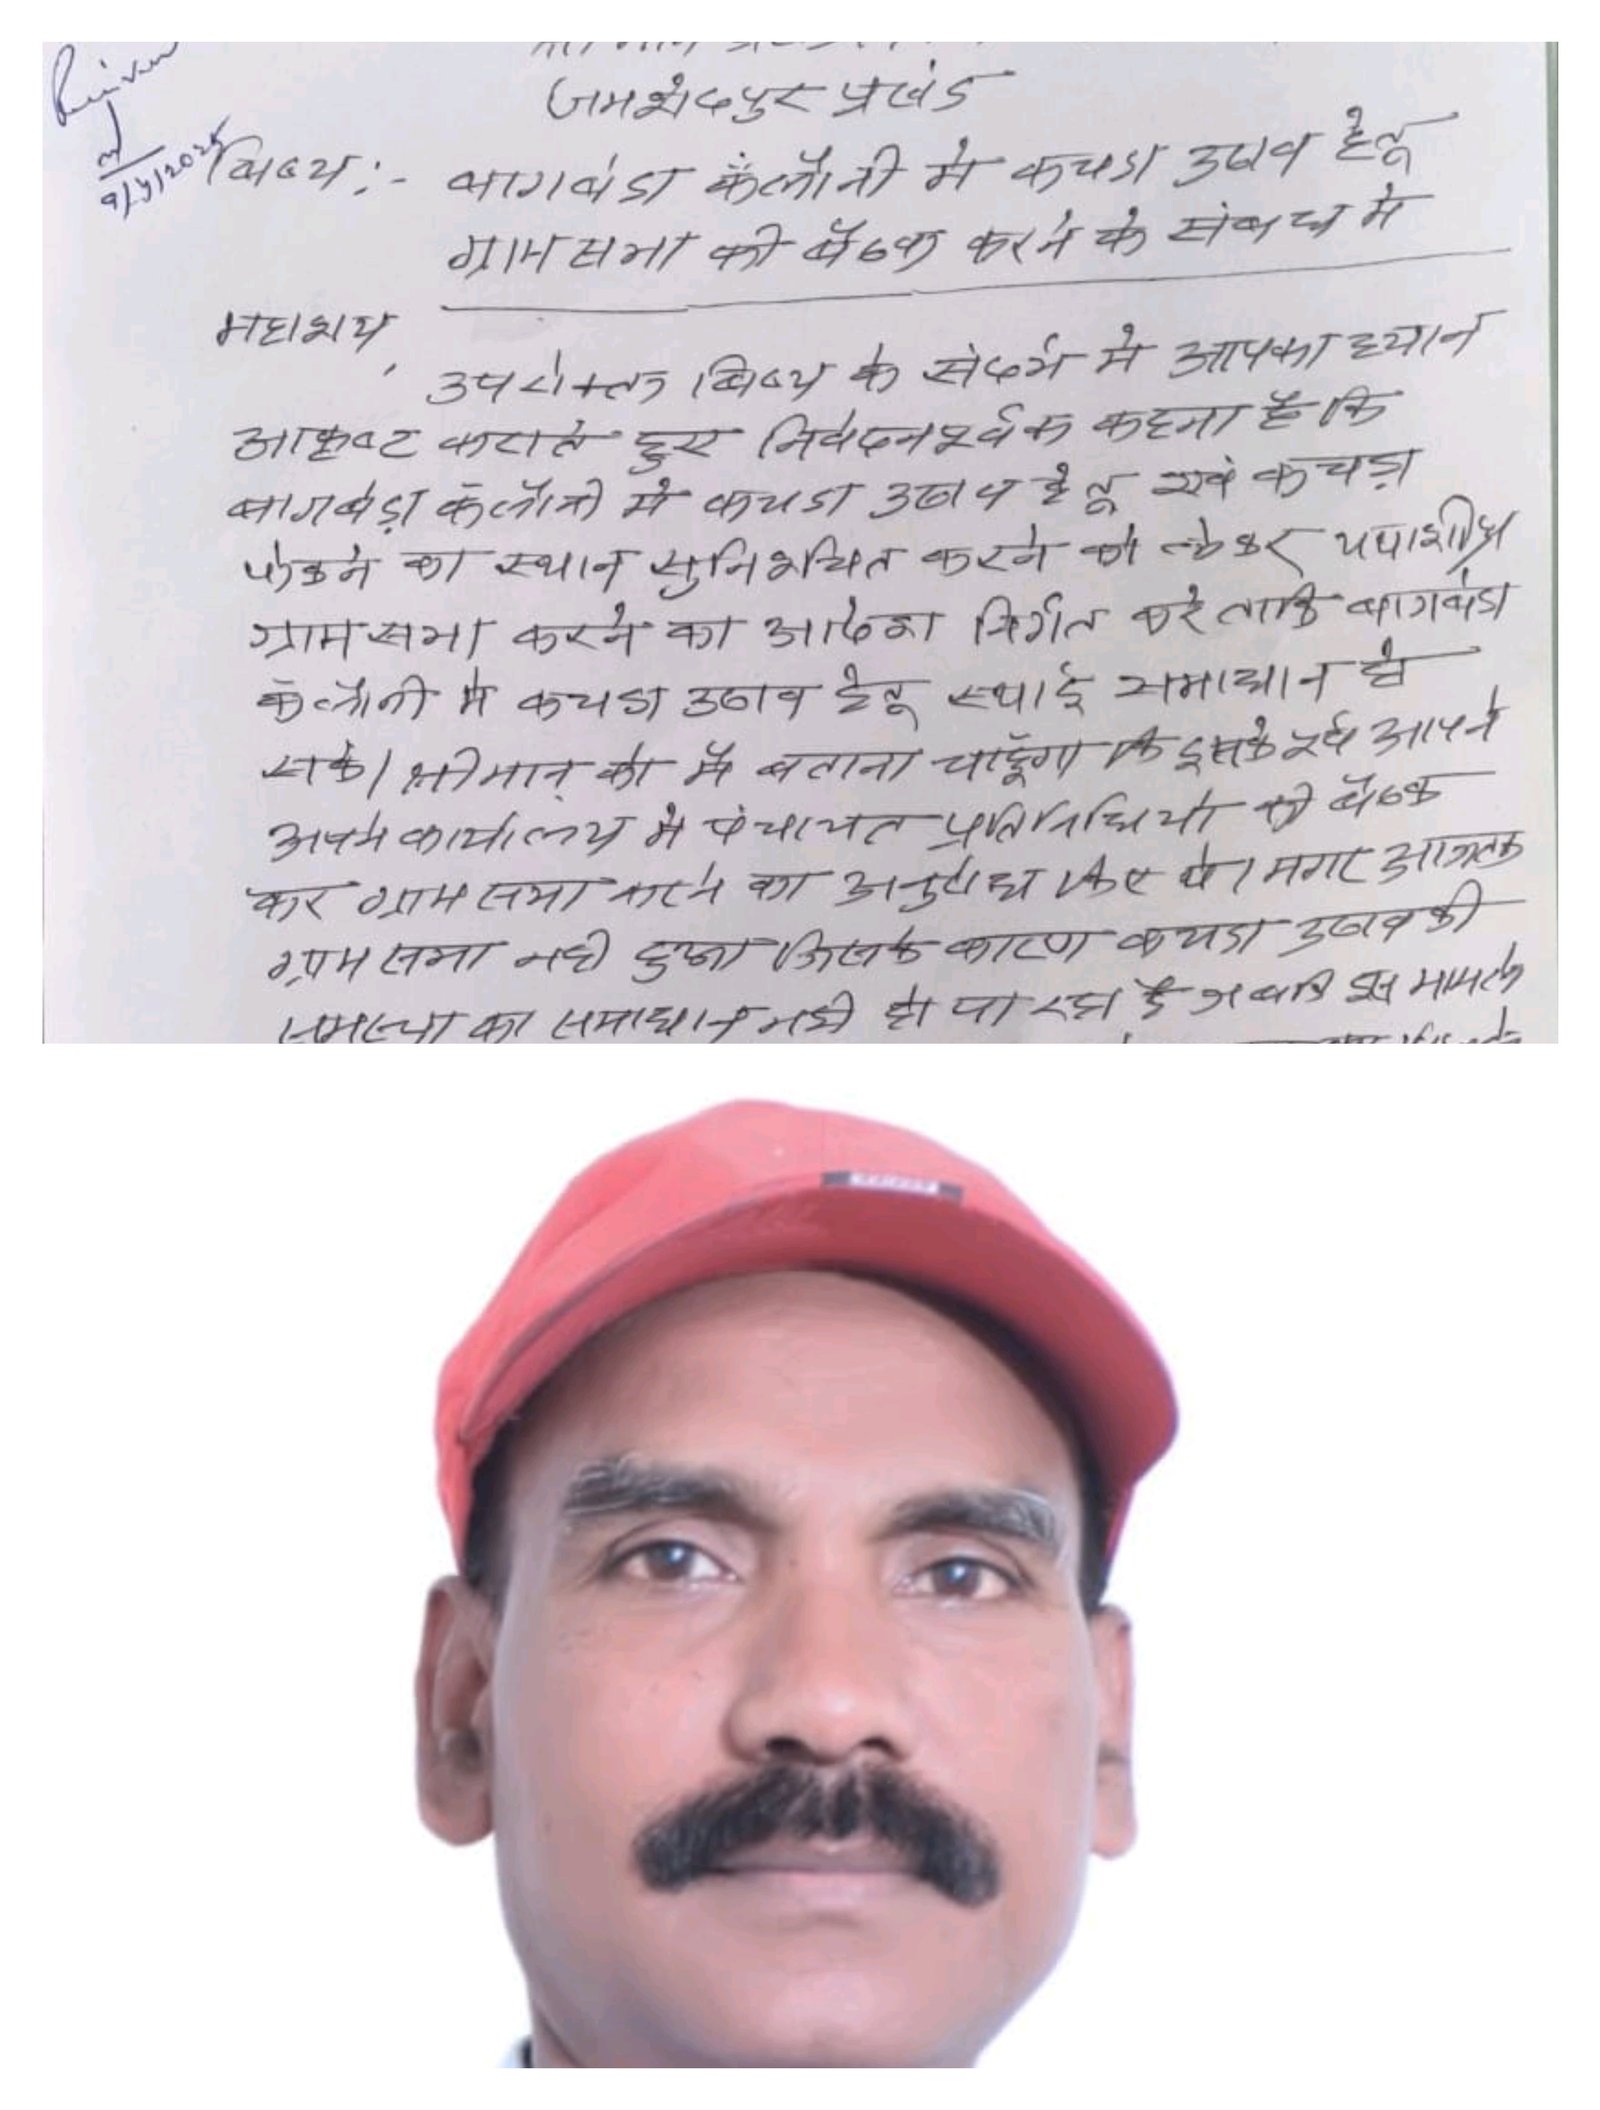 जमशेदपुर प्रखंड
9/5/2025
विषय :- बागबेडा कॅलौनी मे कचडा उठाव हेतू
ग्राम सभा की बैठक करने के संबंध मे
महाशय,
उपरोक्त विषय के संदर्भ मे आपका ध्यान
आकृष्ट कराते हुए निवेदनपूर्वक कहना है कि
बागबेड़ा कॅलौनी मे कचडा उठाव हेतू एवं कचड़ा
फेकने का स्थान सुनिश्चित करने को लेकर यथाशीघ्र
ग्राम सभा करने का आदेश निर्गत करे ताकि बागबेडा
कॅलौनी मे कचडा उठाव हेतू स्थाई समाधान हो
सके। श्रीमान् को मै बताना चाहूँगा कि इसके पूर्व आपने
अपने कार्यालय मे पंचायत प्रतिनिधियो की बैठक
कर ग्राम सभा करने का अनुरोध किए थे। मगर आजतक
ग्राम सभा नही हुआ जिसके कारण कचडा उठाव की
समस्या का समाधान नही हो पा रहा है जबकि इस मामले